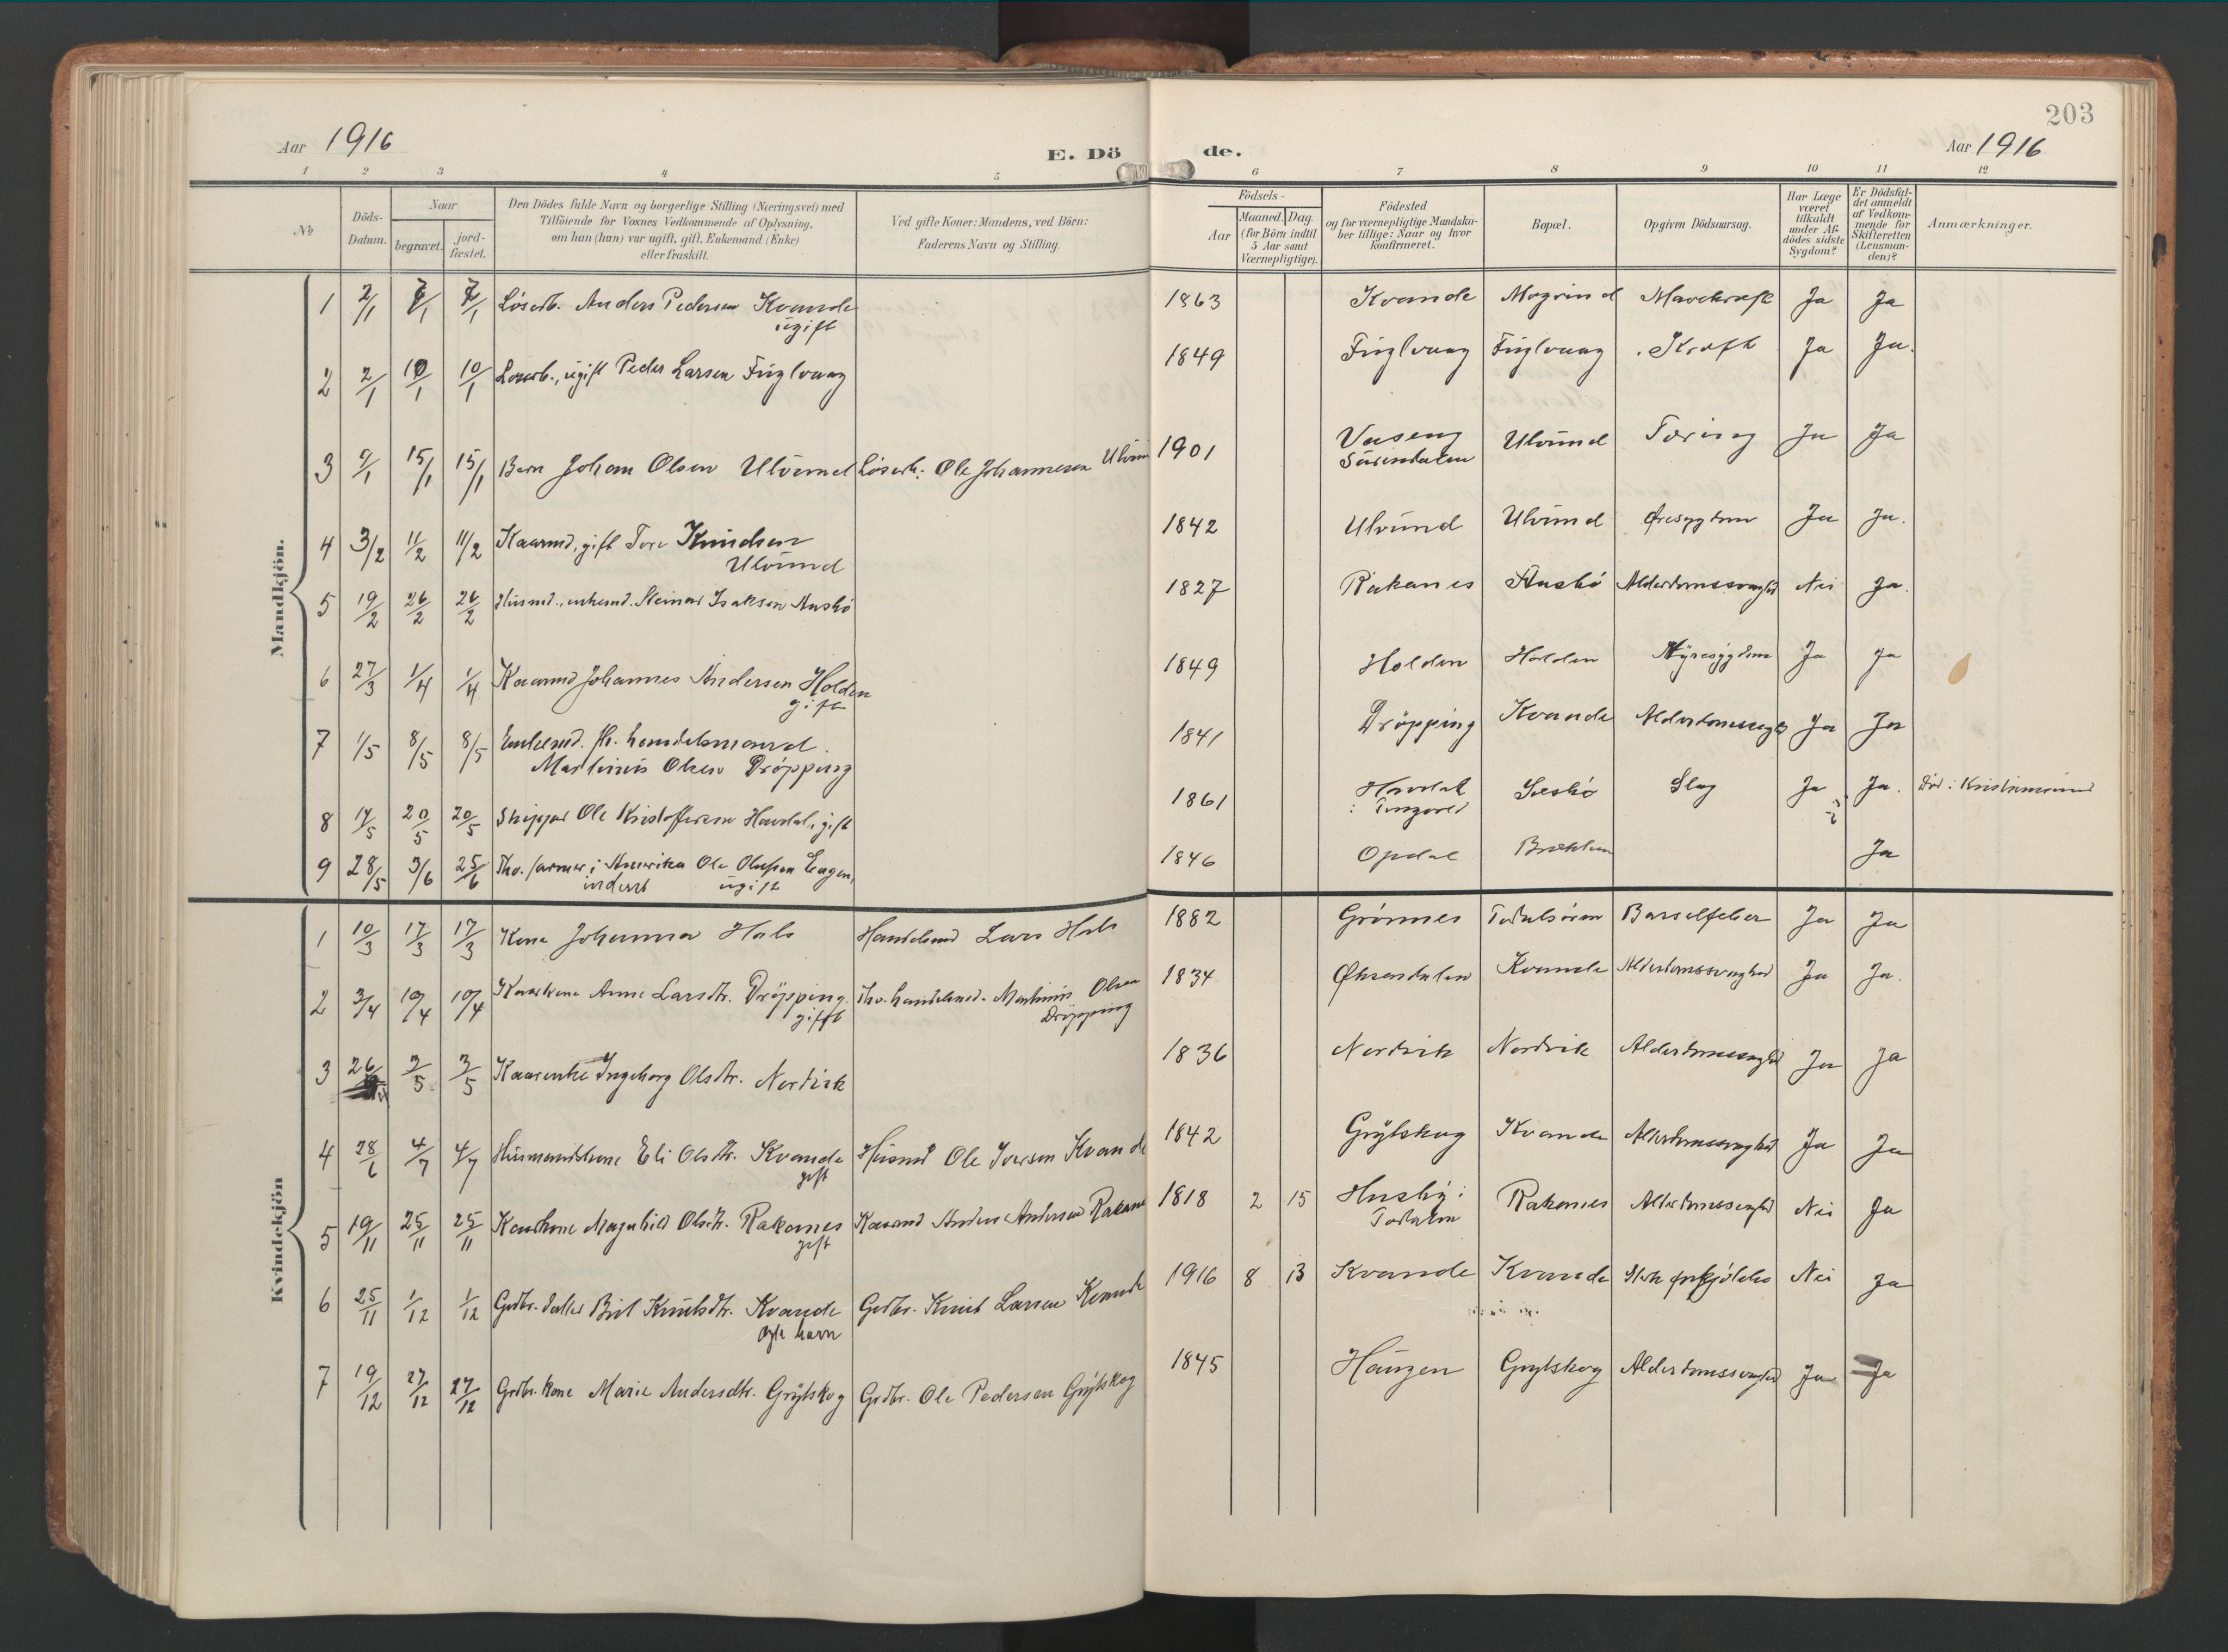 203
Aar 1916
E. Dö de.
Aar 1916
1 2 3 4 5 6 7 8 9 10 11 12
№
Döds-Datum.
Naar
begravet.
jord-fæstet.
Den Dödes fulde Navn og borgerlige Stilling (Næringsvei) med
Tilföiende for Voxnes Vedkommende af Oplysning,
om han (hun) var ugift, gift, Enkemand (Enke)
eller fraskilt.
Ved gifte Koner: Mandens, ved Börn:
Faderens Navn og Stilling.
Födsels-
Aar
Maaned. Dag.
(for Börn indtil
5 Aar samt
Værnepligtige).
Födested
og for værnepligtige Mandska-
ber tillige: Naar og hvor
konfirmeret.
Bopæl.
Opgiven Dödsaarsag.
Har Læge
været
tilkaldt
under Af-
dödes sidste
Sygdom?
Er Dödsfal-
det anmeldt
af Vedkom-
mende for
Skifteretten
(Lensman-
den)?
Anmærkninger.
Mandkjön.
1 2/1 7/1 7/1 Löserb. Anders Pedersen Kvande 1863 Kvande Magrind Ja Ja
ugift
2 2/1 10/1 10/1 ugift Peder Larsen Fuglvaag 1849 Fuglvaag Fuglvaag Kræft Ja Ja.
3 9/1 15/1 15/1 Barn Johan Olsen Ulvund Löserb: Ole Johannesen 1901 Vaseng Ulvund Tæring Ja Ja
Surendalen
4 3/2 11/2 11/2 Kaarmd, gift Tore Knudsen 1842 Ulvund Ulvund Øresygdom Ja Ja.
Ulvund
5 19/2 26/2 26/2 Husmd., enkemd. Steinar Isaksen Husbö 1827 Rakanes Husbö Alderdomssvaghed Nei Ja.
6 27/3 1/4 1/4 Kaarmd Johannes Andersen Holden 1849 Holden Holden Nyresygdom Ja Ja
gift
7 1/5 8/5 8/5 Enkemd. fh. handelsmand. 1841 Dröpping Kvande Alderdomssvaghed Ja Ja
Martinus Olsen Dröpping
8 14/5 20/5 20/5 Skipper Ole Kristoffersen Havdal, gift 1861 Havdal Slag Ja Ja. Död i Kristiansund
i Tingvold
9 28/5 3/6 25/6 Fhv. farmer i Amerika Ole Olufsen Engen, 1846 Opdal Ja
inderst ugift
Kvindekjön
1 10/3 17/3 17/3 Kone Johanna Hals Handelsmd Lars Hals 1882 Grönnes Todalsören Barselfeber Ja Ja
2 3/4 10/4 10/4 Kaarkone Anne Larsdtr. Dröpping. Fhv. handelsmd. Martinus Olsen 1834 Øksendalen Kvande Alderdomssvaghed Ja Ja.
gift Dröpping
3 26/ 3/5 3/5 Kaarenke Ingeborg Olsdtr. Nordvik 1836 Nordvik Nordvik Alderdomssvaghed Ja Ja
4 28/6 4/7 4/7 Husmandskone Eli Olsdtr. Kvande Husmd Ole Iversen Kvande 1842 Grytskog Kvande Alderdomssvaghed Ja Ja
gift
5 19/11 25/11 25/11 Kaarkone Magnhild Olsdtr. Rakanes Kaarmd Anders Andersen Rakanes 1818 2 15 Husby i Rakanes Alderdomssvaghed Nei Ja
gift Todalen
6 25/11 1/12 1/12 Grdbr. datter Knutsdtr. Kvande Grdbr. Knut Larsen Kvande 1916 8 13 Kvande Kvande Nei Ja
ægte barn
7 19/12 27/12 27/12 Grdbr. kone Marie Andersdtr. Grytskog Grdbr. Ole Pedersen Grytskog 1845 Haugen Grytskog Alderdomssvaghed Ja Ja